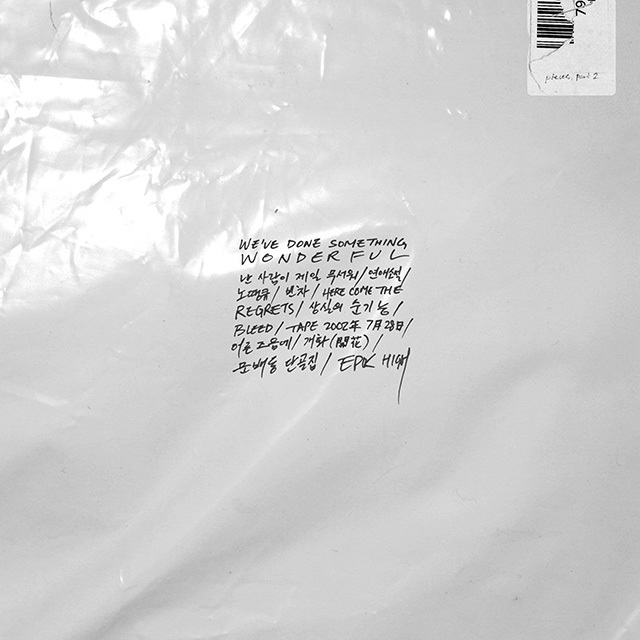 pieces, part 2
WE'VE DONE SOMETHING
WONDERFUL
난 사람이 제일 무서워/ 연애소설/
노땡큐/ 빈차/ HERE COME THE
REGRETS/ 상실의 순기능/
BLEED/ TAPE 2002年 7月 28日/
어른 즈음에/ 개화(開花)/
문배동 단골집/ EPIK HIGH